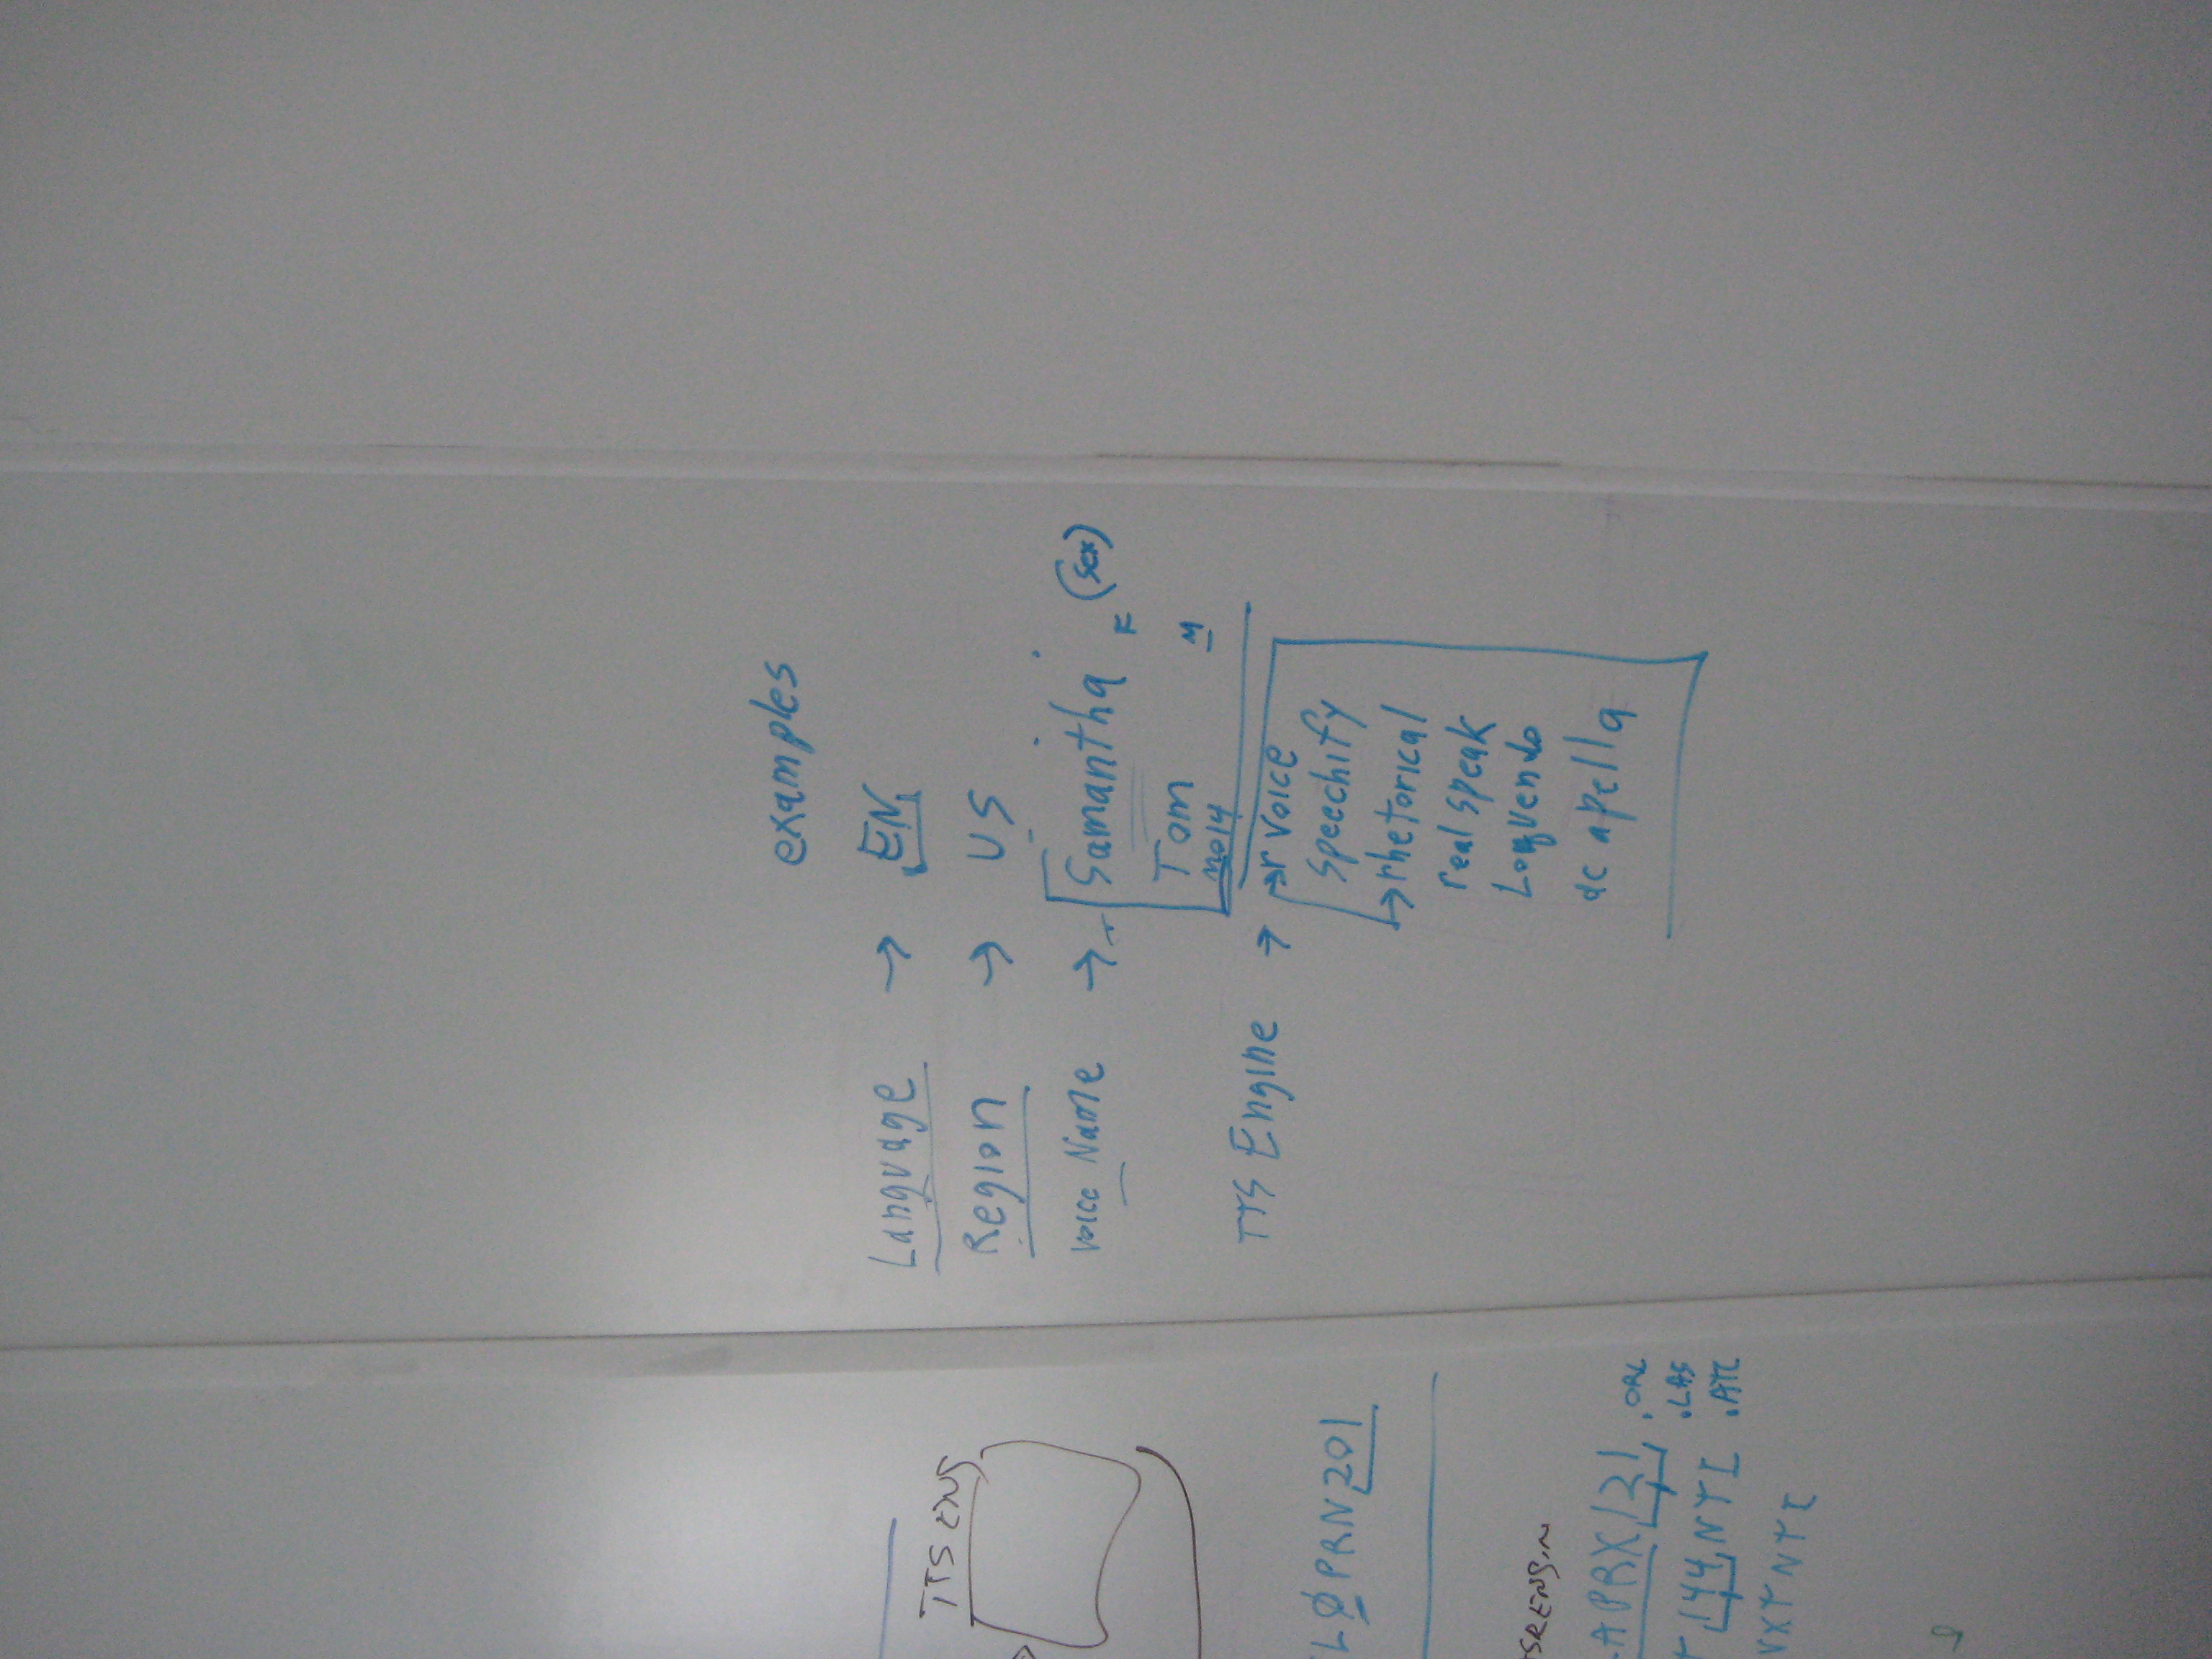 examples
Language → EN
Region → US
Voice Name → Samantha F (sex)
Tom M
TTS Engine → rVoice
Speechify
rhetorical
real speak
Loquendo
acapella
TTS ENG
LØPRN201
APRX121.ORL
144NTI.LAS
VXTNTI.ATL